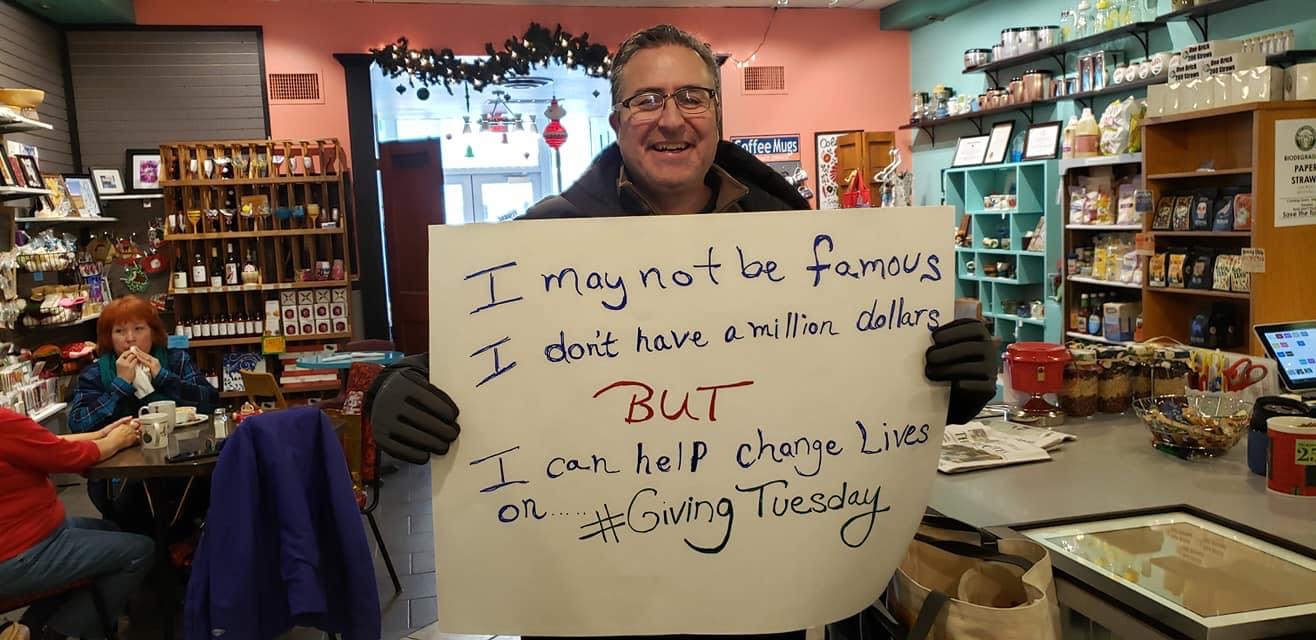 Coffee Mugs
I may not be famous
I don't have a million dollars
BUT
I can help change Lives
on.....#Giving Tuesday
BIODEGRADABLE
PAPER
STRAWS